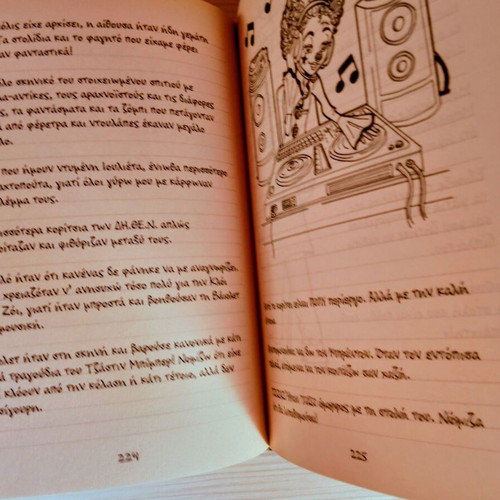 όλις είχε αρχίσει, η αίθουσα ήταν ήδη γεμάτη
Τα στολίδια και το φαγητό που είχαμε φέρει
αν φανταστικά!
λο σκηνικό του στοιχειωμένου σπιτιού με
α-αντίκες, τους αραχνοϊστούς και τις διάφορες
ς, τα φαντάσματα και τα ζόμπι που πετάγονταν
από φέρετρα και ντουλάπες έκαναν μεγάλο
λο.
που ήμουν ντυμένη Ιουλιέτα, ένιωθα περισσότερο
αχτοπούτα, γιατί όλοι γύρω μου με κάρφωναν
λέμμα τους.
ισσότερα κορίτσια των ΔΗ.ΘΕ.Ν. απλώς
οίταζαν και ψιθύριζαν μεταξύ τους.
λό ήταν ότι κανένας δε φάνηκε να με αναγνωρίζει.
χρειαζόταν ν' ανησυχώ τόσο πολύ για την Κλόι
Ζόι, γιατί ήταν μπροστά και βοηθούσαν τη Βάιολετ
μουσική.
λετ ήταν στη σκηνή και βαρούσε κανονικά με κάτι
ά τραγούδια του Τζάστιν Μπίμπερ! Νομίζω ότι είχε
κλέουν από την κόλαση ή κάτι τέτοιο, αλλά δεν
σίγουρη.
224
το κορίτσι είναι ΠΟΛΥ περίεργο. Αλλά με την καλή
να δω τον Μπράντον. Όταν τον εντόπισα
και τον κοιτάζω σαν χαζή.
ΤΟΣΟ όμορφος με τη στολή του. Νόμιζα
225